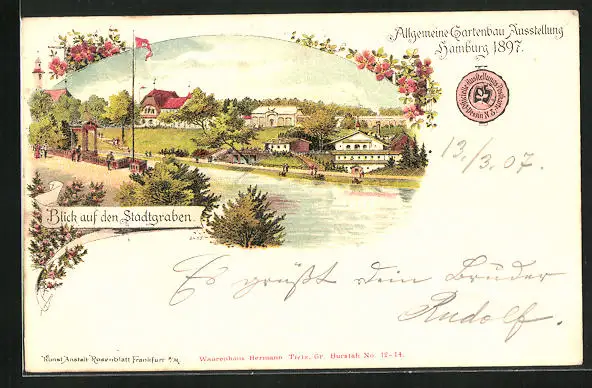 Allgemeine Gartenbau Ausstellung
Hamburg 1897.
25
13./3. 07.
Blick auf den Stadtgraben.
Es grüßt dein Bruder
Rudolf.
Kunst Anstalt Rosenblatt Frankfurt a/M
Waarenhaus Hermann Tietz, Gr. Burstah No. 12-14.